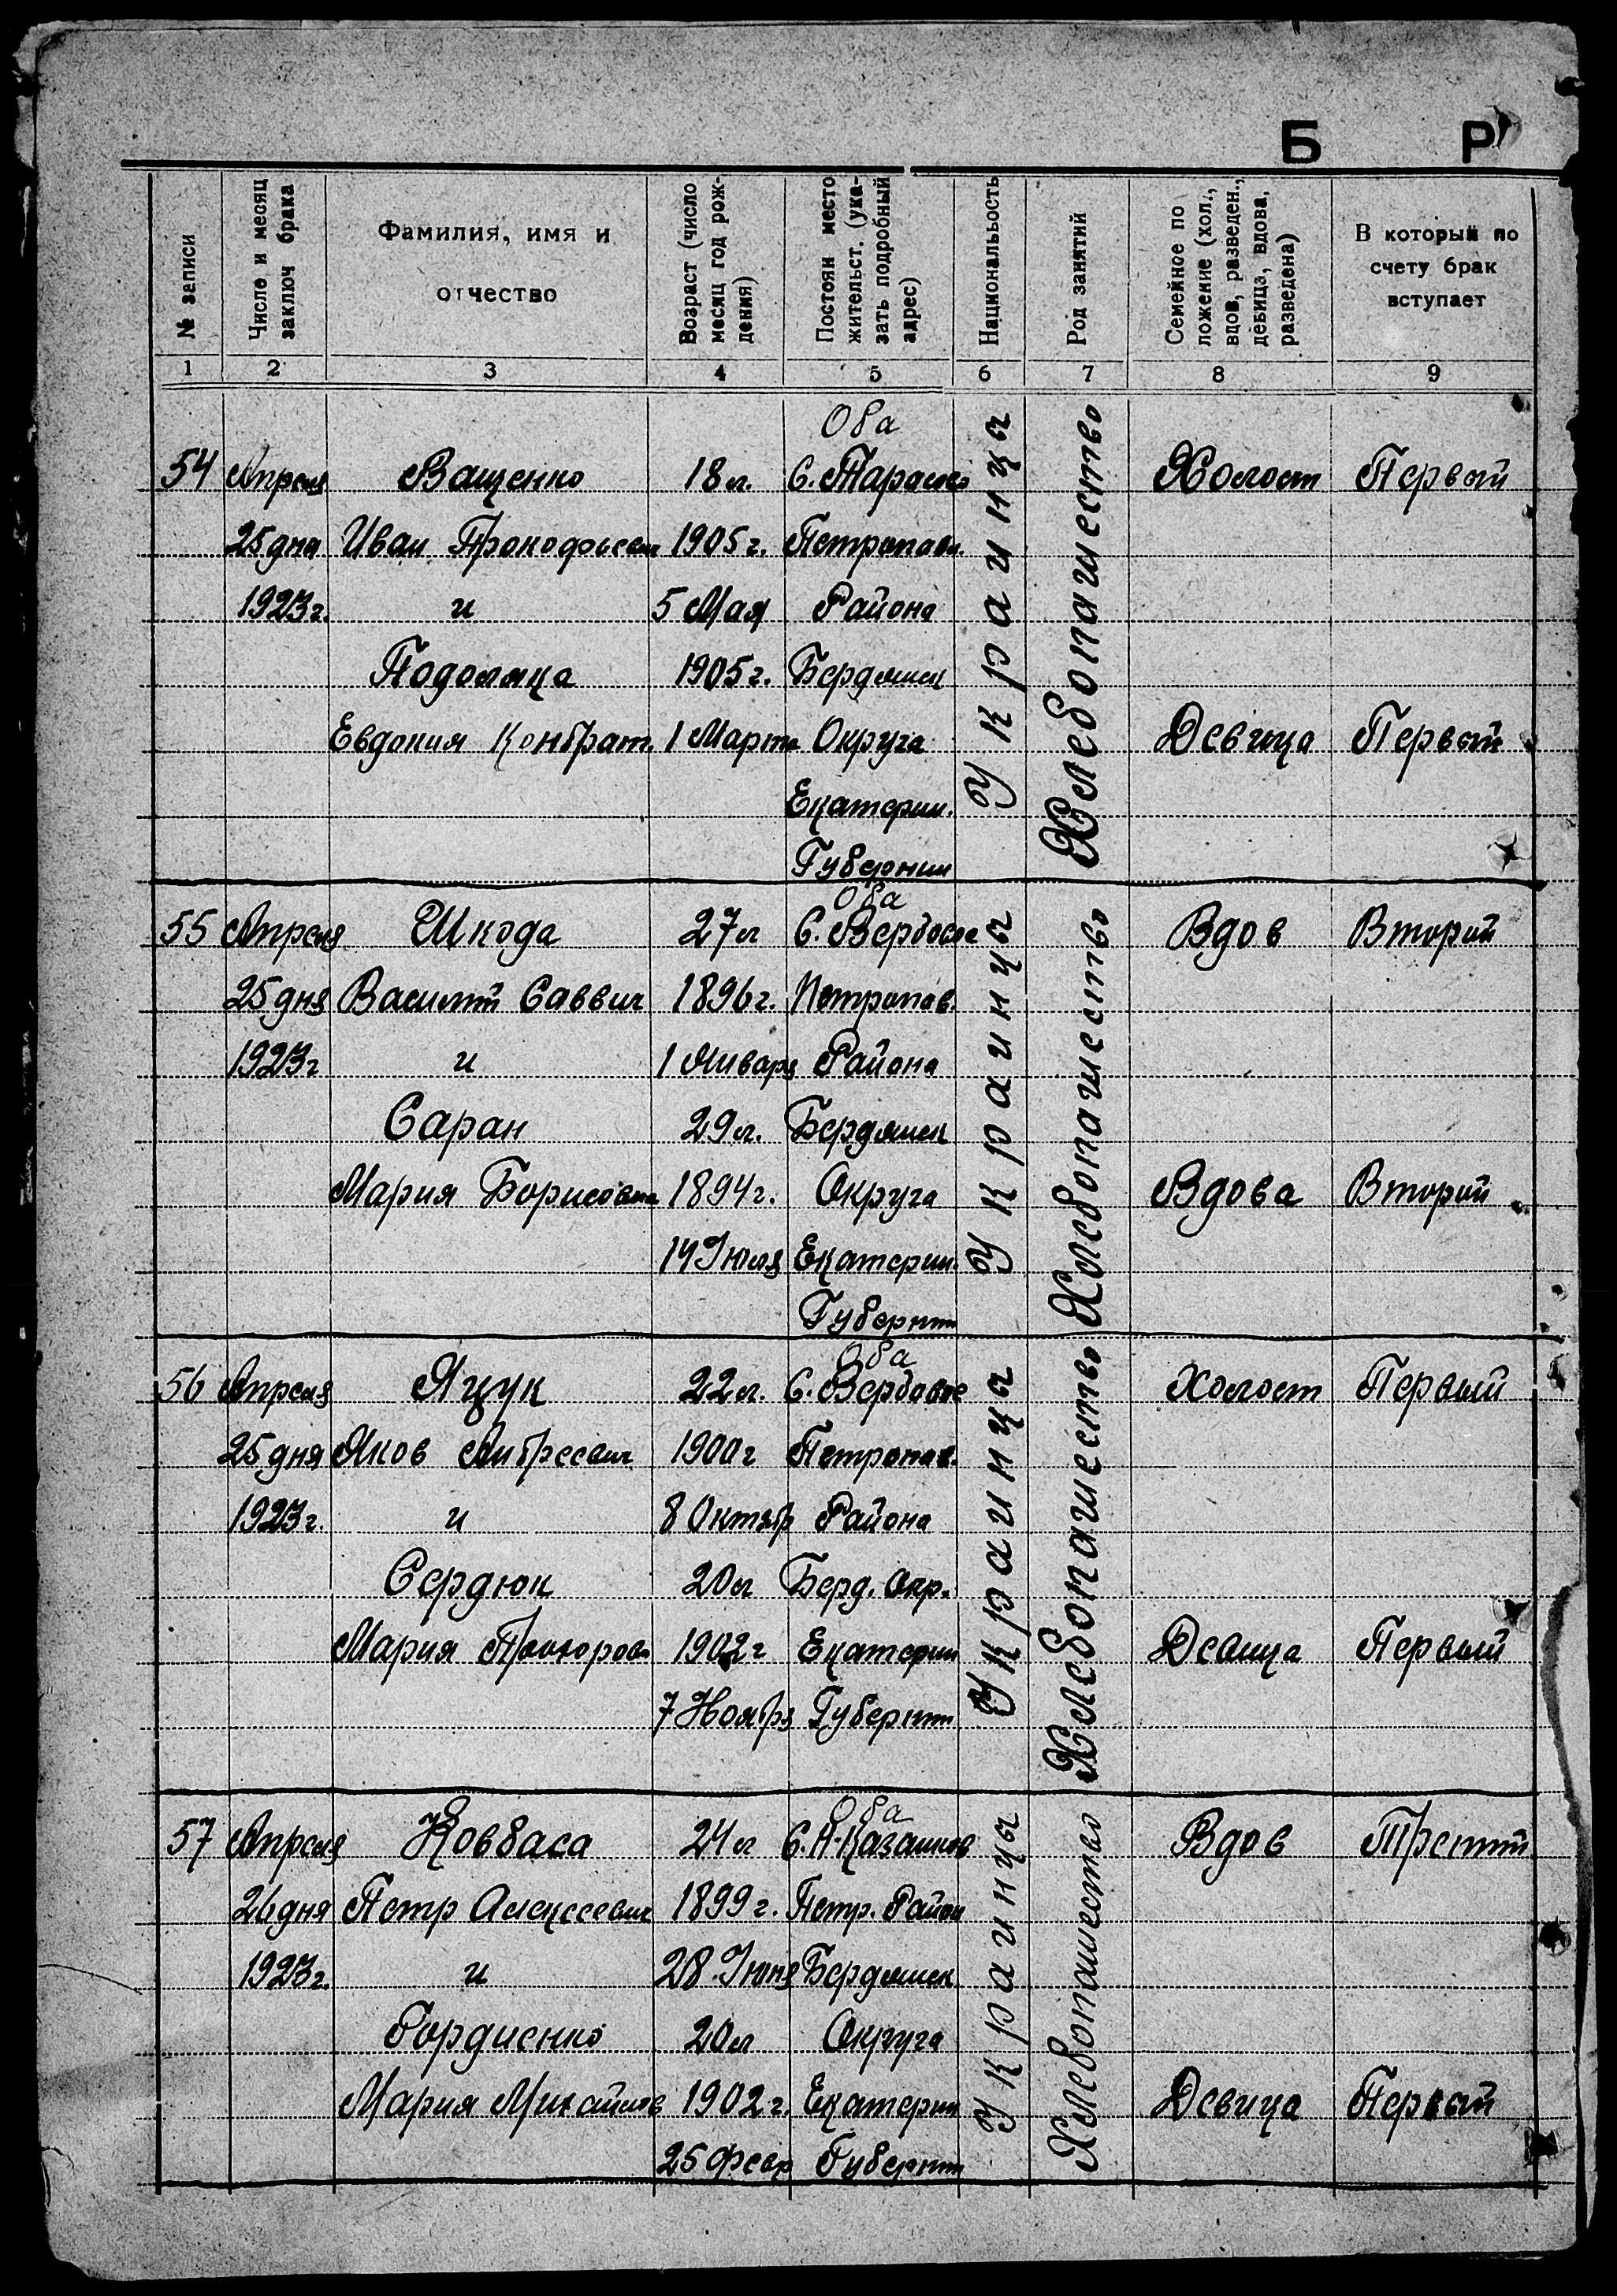 Б Р
№ записи
Число и месяц
заключ брака
Фамилия, имя и
отчество
Возраст (число
месяц год рож-
дения)
Постоян место
жительст. (ука-
зать подробный
адрес)
Национальость
Род занятий
Семейное по
ложение (хол.,
вдов, разведен.,
девица, вдова,
разведена)
В который по
счету брак
вступает
1 2 3 4 5 6 7 8 9
Оба
54 Апреля Ващенко 18 л. С. Тарасово Украинцы Хлебопашество Холост Первый
25 дня Иван Прокофьевич 1905 г. Петропавл.
1923 г. и 5 Мая Района
Подоляка 1905 г. Бердянск
Евдокия Кондрат. 1 Марта Округа Девица Первый
Екатерин.
Губернии
Оба
55 Апреля Шкода 27 л С. Вербовое Украинцы Хлебопашество Вдов Второй
25 дня Василий Саввич 1896 г. Петропав.
1923 г и 1 Января Района
Саран 29 л. Бердянск
Мария Борисовна 1894 г. Округа Вдова Второй
14 Июля Екатерин.
Губернии
Оба
56 Апреля Яцук 22 л. С. Вербовое Украинцы Хлебопашество Холост Первый
25 дня Яков Андреевич 1900 г Петропав.
1923 г. и 8 Октябр Района
Сердюк 20 л Берд. Окр.
Мария Прохоров 1902 г Екатерин Девица Первый
7 Ноября Губернии
Оба
57 Апреля Ковбаса 24 л С. Н-Казанков Украинцы Хлебопашество Вдов Третий
26 дня Петр Алексеевич 1899 г. Петр. Район
1923 г. и 28 Июня Бердянск
Гордиенко 20 л Округа
Мария Михайлов 1902 г. Екатерин Девица Первый
25 Февр Губернии